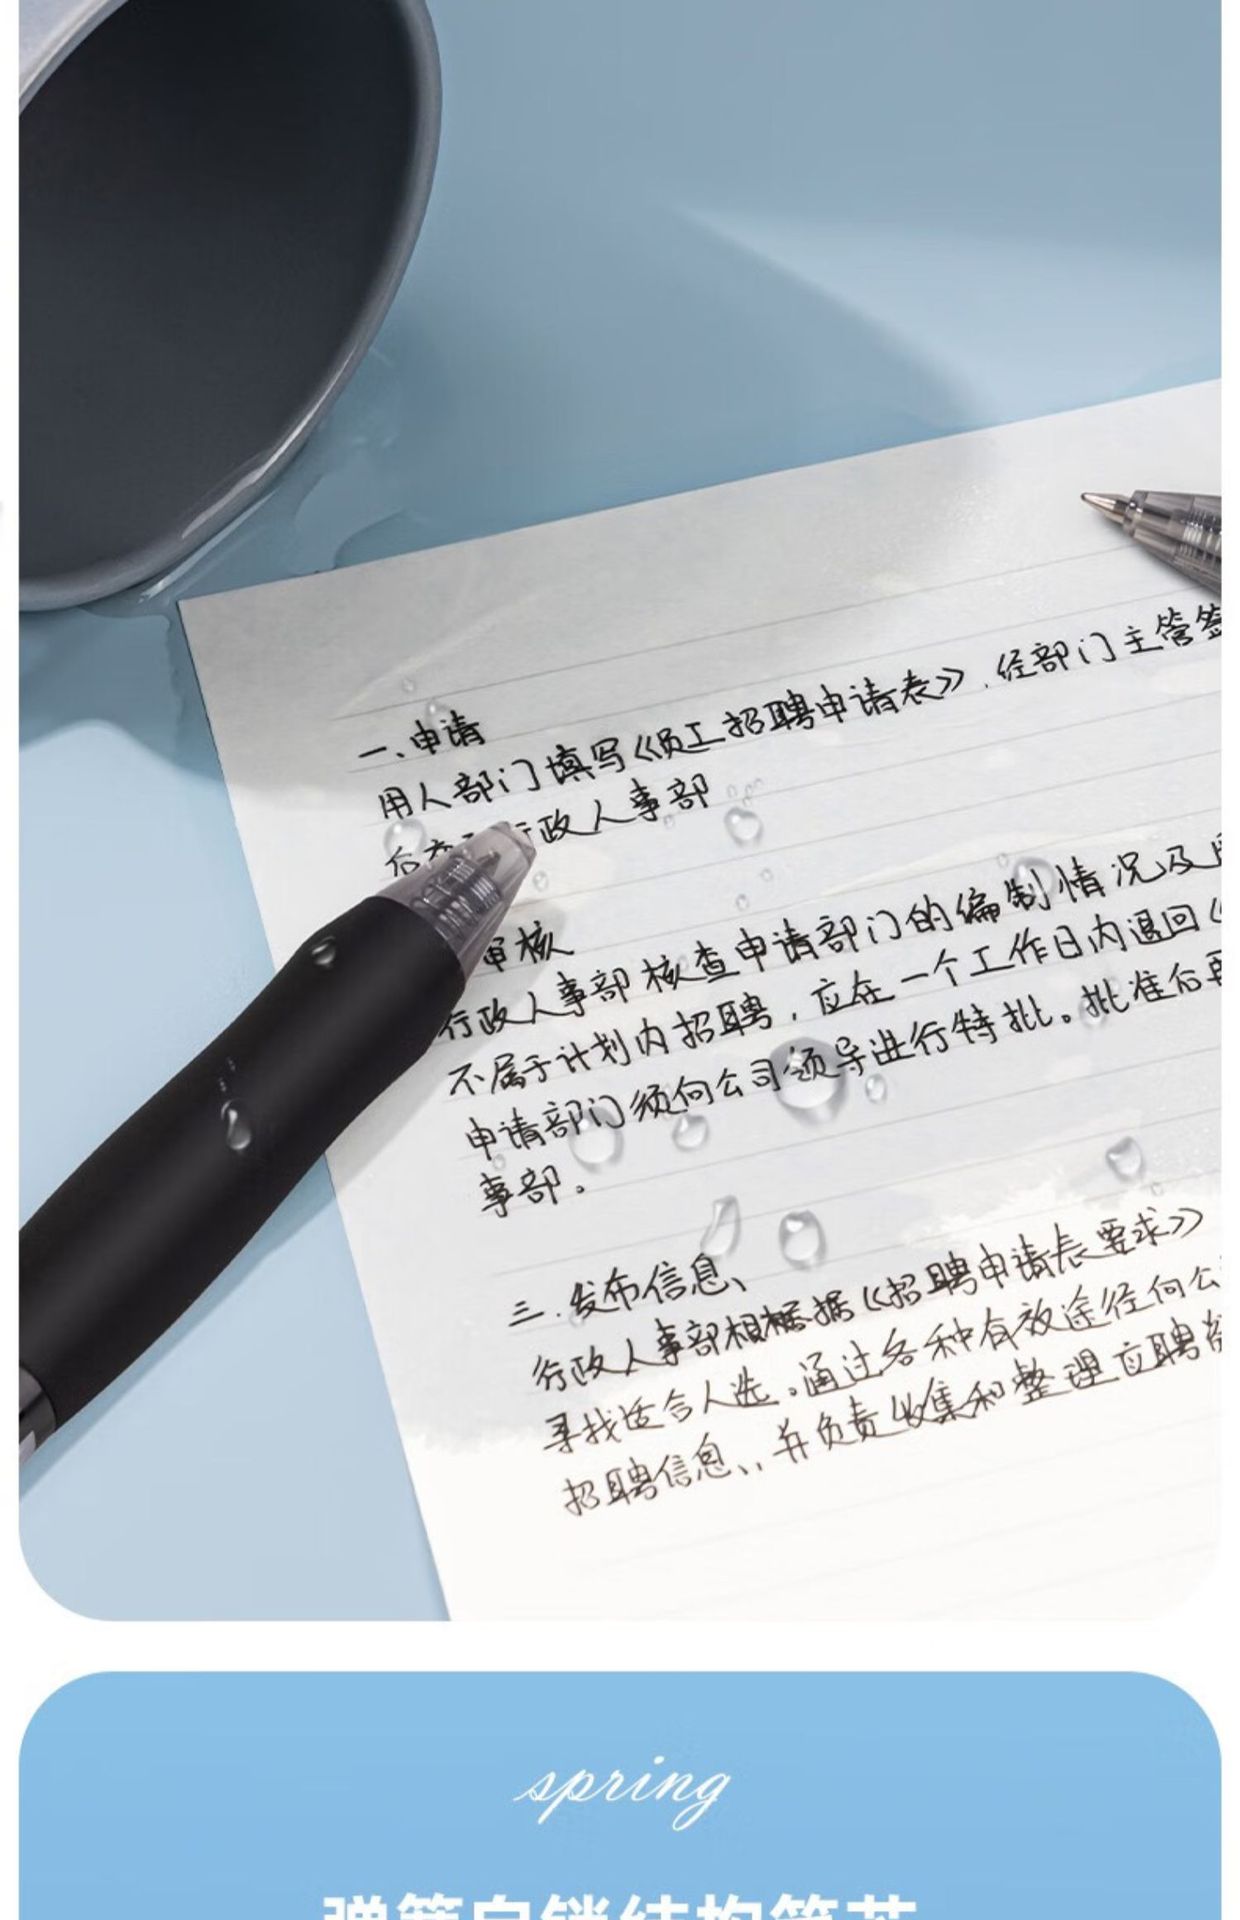 一、申请
用人部门填写《员工招聘申请表》，经部门主管签
后交 行政人事部
审核
行政人事部核查申请部门的编制情况及
不属于计划内招聘，应在一个工作日内退回《
申请部门须向公司领导进行特批。批准后再
事部。
三.发布信息、
行政人事部根据《招聘申请表要求》
寻找适合人选。通过各种有效途径向公
招聘信息、，并负责收集和整理应聘
spring
弹簧自锁结构笔芯